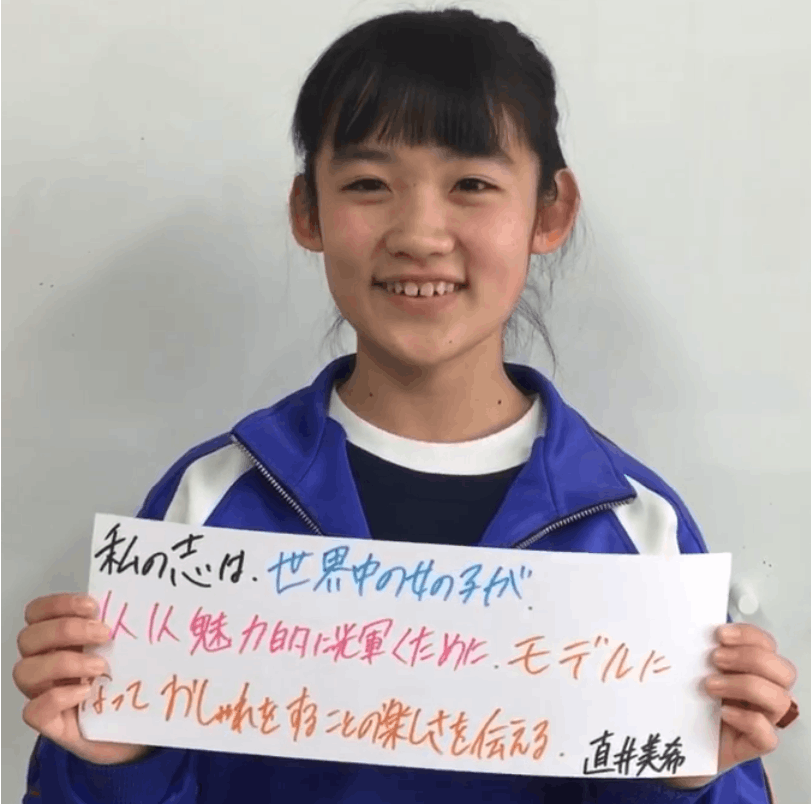 私の志は、世界中の女の子が、
1人1人魅力的に輝くために、モデルに
なっておしゃれをすることの楽しさを伝える。
直井美希